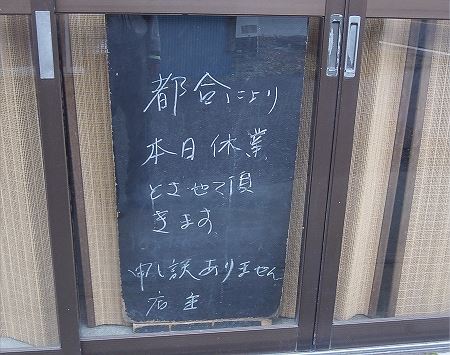 都合により
本日休業
とさせて頂
きます
申し訳ありません
店主